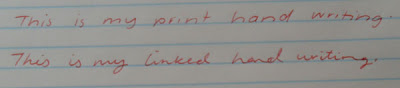 This is my print hand writing.
This is my linked hand writing.